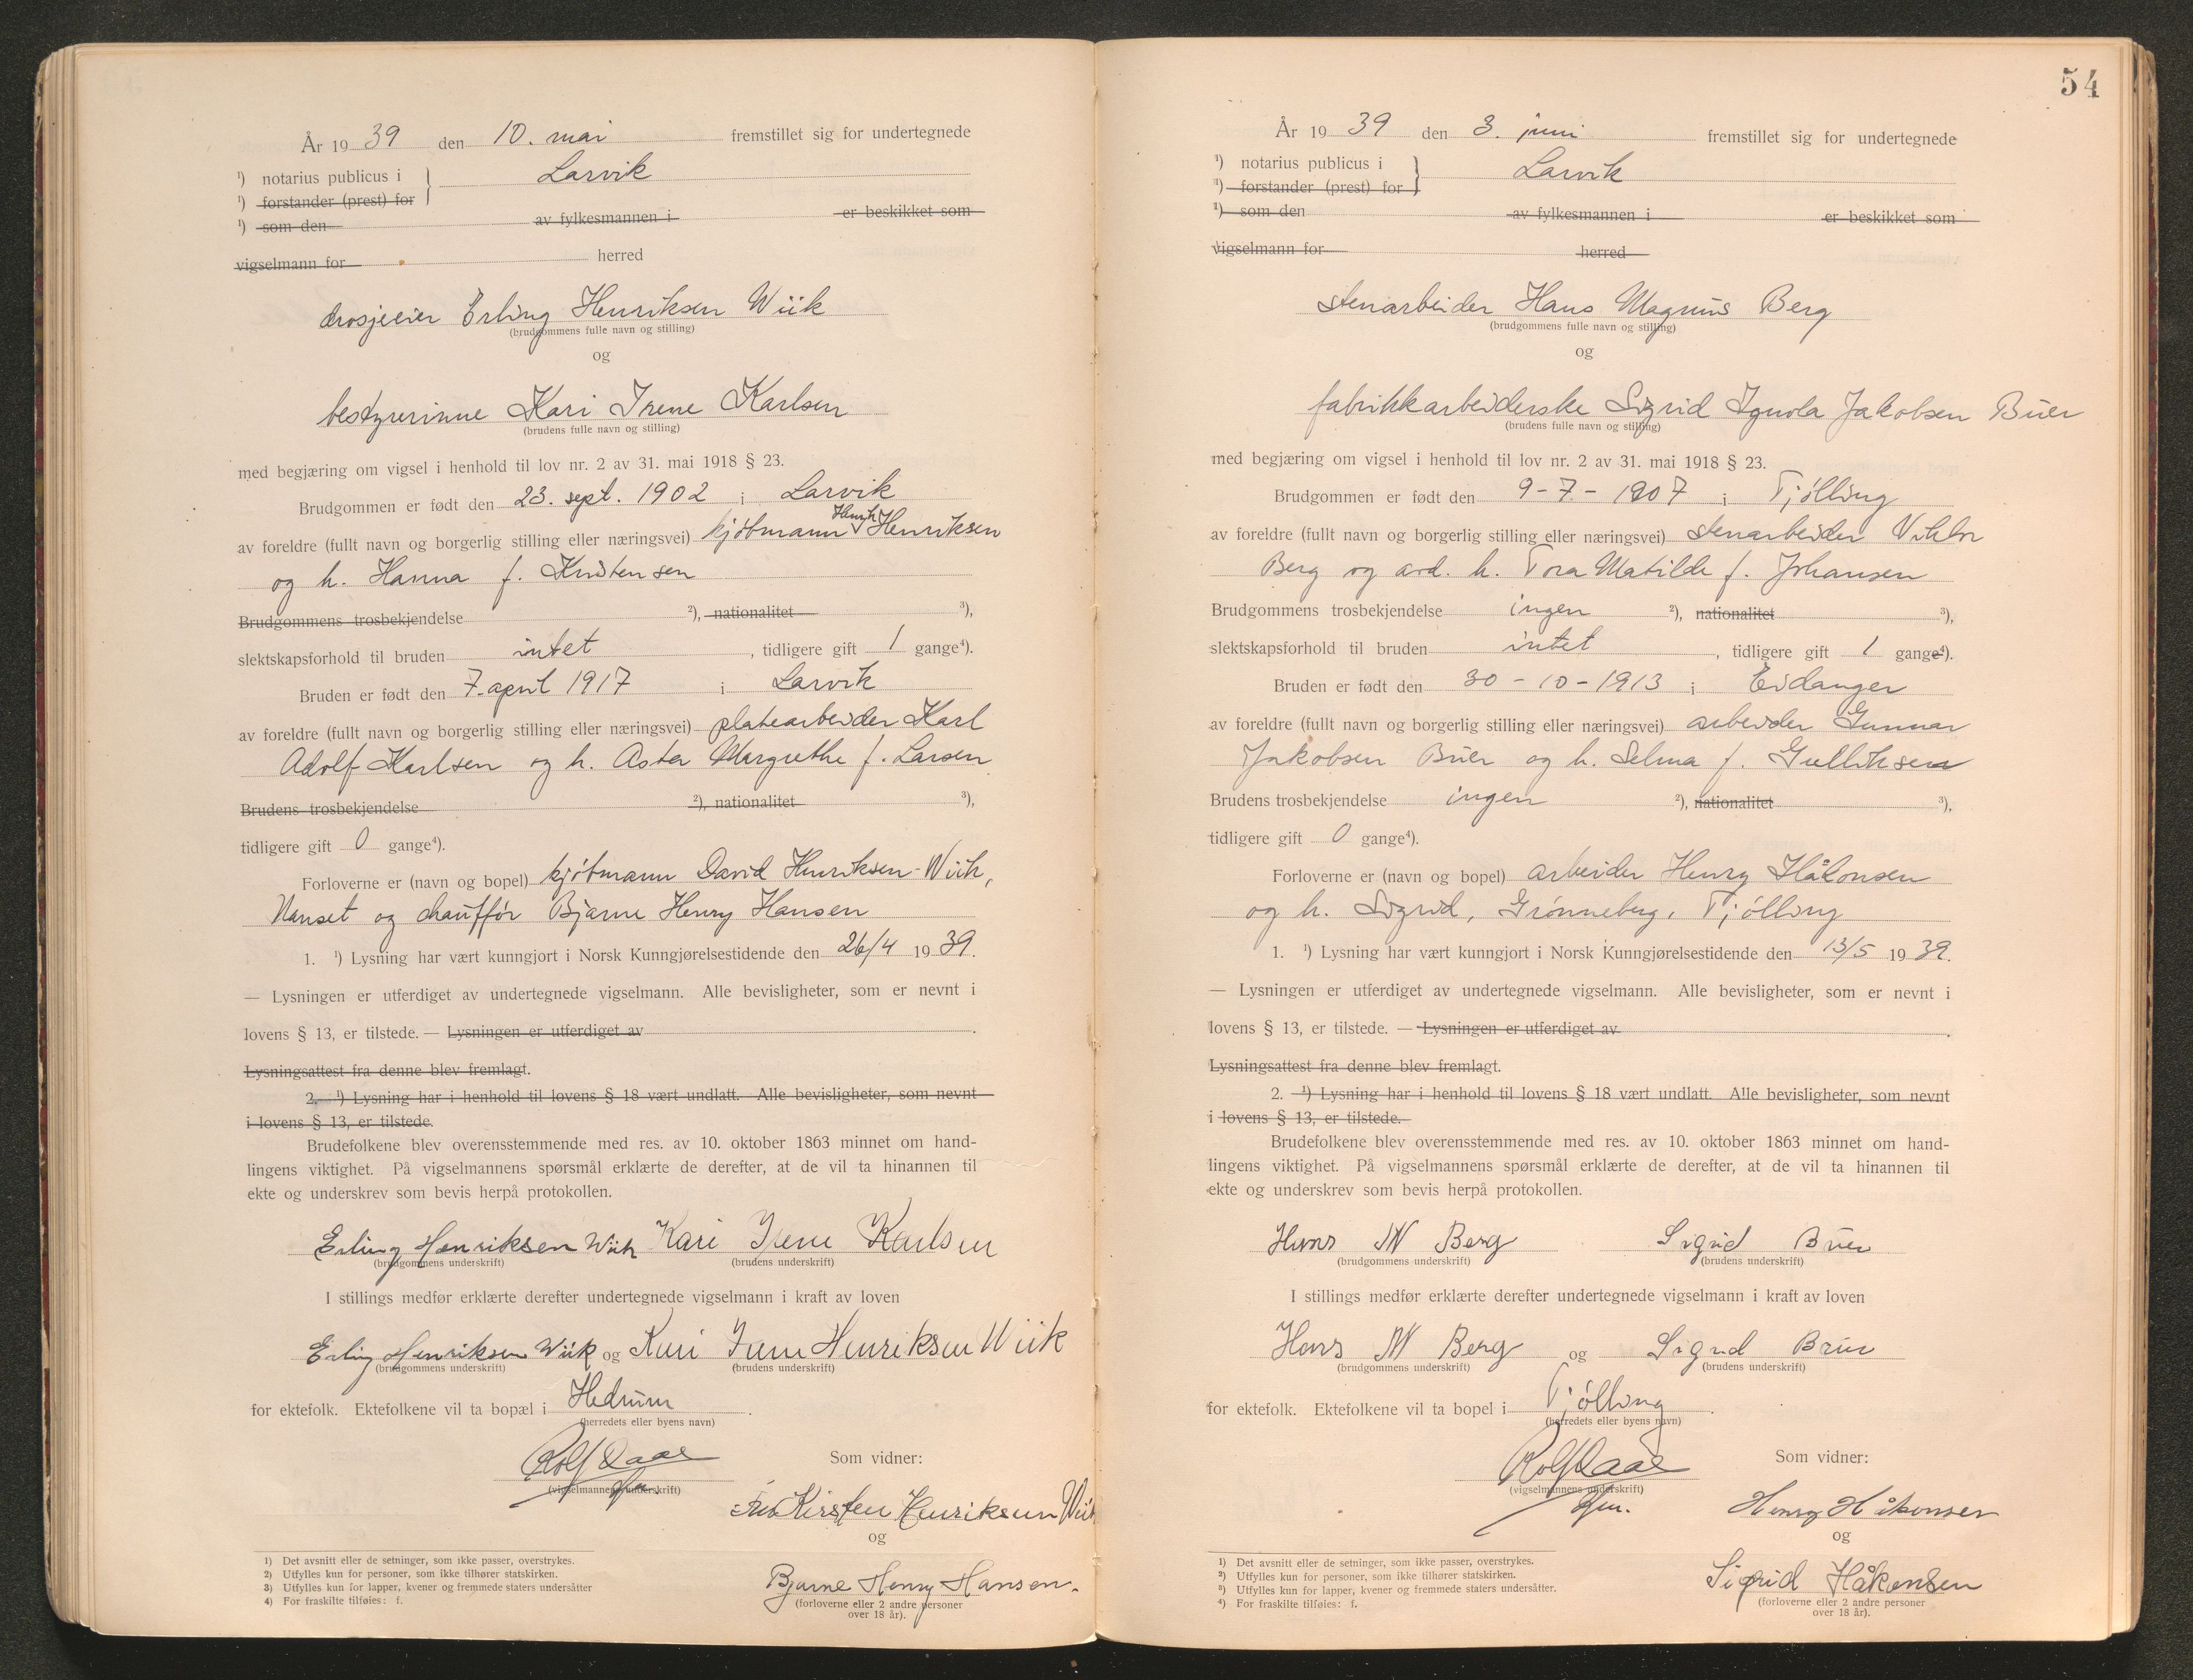 År 19 39 den 10. mai fremstillet sig for undertegnede
¹) notarius publicus i } Larvik
¹) forstander (prest) for
¹) som den av fylkesmannen i er beskikket som
vigselmann for herred
drosjeeier Erling Henriksen Wiik
(brudgommens fulle navn og stilling)
og
bestyrerinne Kari Irene Karlsen
(brudens fulle navn og stilling)
med begjæring om vigsel i henhold til lov nr. 2 av 31. mai 1918 § 23.
Brudgommen er født den 23. sept. 1902 i Larvik
av foreldre (fullt navn og borgerlig stilling eller næringsvei) kjøbmann Henrik Henriksen
og h. Hanna f. Kristensen
Brudgommens trosbekjendelse ²), nationalitet ³),
slektskapsforhold til bruden intet, tidligere gift 1 gange⁴).
Bruden er født den 7. april 1917 i Larvik
av foreldre (fullt navn og borgerlig stilling eller næringsvei) platearbeider Karl
Adolf Karlsen og h. Asta Margrethe f. Larsen
Brudens trosbekjendelse ²), nationalitet ³),
tidligere gift 0 gange⁴).
Forloverne er (navn og bopel) kjøbmann David Henriksen-Wiik,
Nanset og chauffør Bjarne Henry Hansen
1. ¹) Lysning har vært kunngjort i Norsk Kunngjørelsestidende den 26/4 19 39.
— Lysningen er utferdiget av undertegnede vigselmann. Alle bevisligheter, som er nevnt i
lovens § 13, er tilstede. — Lysningen er utferdiget av .
Lysningsattest fra denne blev fremlagt.
2. ¹) Lysning har i henhold til lovens § 18 vært undlatt. Alle bevisligheter, som nevnt
i lovens § 13, er tilstede.
Brudefolkene blev overensstemmende med res. av 10. oktober 1863 minnet om hand-
lingens viktighet. På vigselmannens spørsmål erklærte de derefter, at de vil ta hinannen til
ekte og underskrev som bevis herpå protokollen.
Erling Henriksen Wiik Kari Irene Karlsen
(brudgommens underskrift) (brudens underskrift)
I stillings medfør erklærte derefter undertegnede vigselmann i kraft av loven
Erling Henriksen Wiik og Kari Irene Henriksen Wiik
(brudgommens underskrift) (brudens underskrift)
for ektefolk. Ektefolkene vil ta bopæl i Hedrum .
(herredets eller byens navn)
Rolf Daae Som vidner:
(vigselmannens underskrift)
Kirsten Henriksen Wiik
og
Bjarne Henry Hansen.
(forloverne eller 2 andre personer
over 18 år).
1) Det avsnitt eller de setninger, som ikke passer, overstrykes.
2) Utfylles kun for personer, som ikke tilhører statskirken.
3) Utfylles kun for lapper, kvener og fremmede staters undersåtter
4) For fraskilte tilføies: f.
54
År 19 39 den 3. juni fremstillet sig for undertegnede
¹) notarius publicus i } Larvik
¹) forstander (prest) for
¹) som den av fylkesmannen i er beskikket som
vigselmann for herred
stenarbeider Hans Magnus Berg
(brudgommens fulle navn og stilling)
og
fabrikkarbeiderske Sigrid Jakobsen Buer
(brudens fulle navn og stilling)
med begjæring om vigsel i henhold til lov nr. 2 av 31. mai 1918 § 23.
Brudgommen er født den 9-7-1907 i Tjølling
av foreldre (fullt navn og borgerlig stilling eller næringsvei) stenarbeider Viktor
Berg og avd. h. Tora Matilde f. Johansen
Brudgommens trosbekjendelse ingen ²), nationalitet ³),
slektskapsforhold til bruden intet, tidligere gift 1 gange⁴).
Bruden er født den 30-10-1913 i Eidanger
av foreldre (fullt navn og borgerlig stilling eller næringsvei) arbeider Gunnar
Jakobsen Buer og h. Selma f. Gulliksen
Brudens trosbekjendelse ingen ²), nationalitet ³),
tidligere gift 0 gange⁴).
Forloverne er (navn og bopel) arbeider Henry Håkonsen
og h. Sigrid, Grønneberg, Tjølling
1. ¹) Lysning har vært kunngjort i Norsk Kunngjørelsestidende den 13/5 19 39.
— Lysningen er utferdiget av undertegnede vigselmann. Alle bevisligheter, som er nevnt i
lovens § 13, er tilstede. — Lysningen er utferdiget av .
Lysningsattest fra denne blev fremlagt.
2. ¹) Lysning har i henhold til lovens § 18 vært undlatt. Alle bevisligheter, som nevnt
i lovens § 13, er tilstede.
Brudefolkene blev overensstemmende med res. av 10. oktober 1863 minnet om hand-
lingens viktighet. På vigselmannens spørsmål erklærte de derefter, at de vil ta hinannen til
ekte og underskrev som bevis herpå protokollen.
Hans M Berg Sigrid Buer
(brudgommens underskrift) (brudens underskrift)
I stillings medfør erklærte derefter undertegnede vigselmann i kraft av loven
Hans M Berg og Sigrid Buer
(brudgommens underskrift) (brudens underskrift)
for ektefolk. Ektefolkene vil ta bopel i Tjølling .
(herredets eller byens navn)
Rolf Daae Som vidner:
(vigselmannens underskrift)
Henry Håkonsen
og
Sigrid Håkonsen
(forloverne eller 2 andre personer
over 18 år).
1) Det avsnitt eller de setninger, som ikke passer, overstrykes.
2) Utfylles kun for personer, som ikke tilhører statskirken.
3) Utfylles kun for lapper, kvener og fremmede staters undersåtter.
4) For fraskilte tilføies: f.